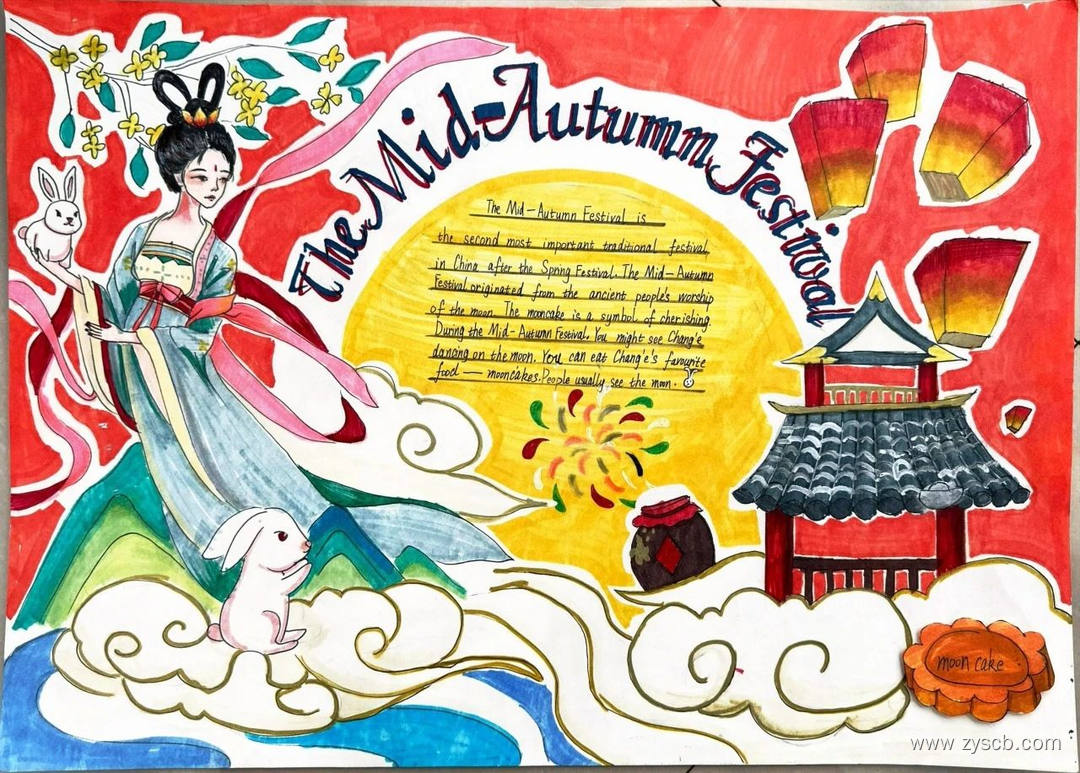 The Mid-Autumn Festival
The Mid-Autumn Festival is
the second most important traditional festival
in China after the Spring Festival. The Mid-Autumn
Festival originated from the ancient people's worship
of the moon. The mooncake is a symbol of cherishing.
During the Mid-Autumn Festival. You might see Chang'e
dancing on the moon. You can eat Chang'e's favourite
food — mooncakes. People usually see the moon.
moon cake
www.zyscb.com